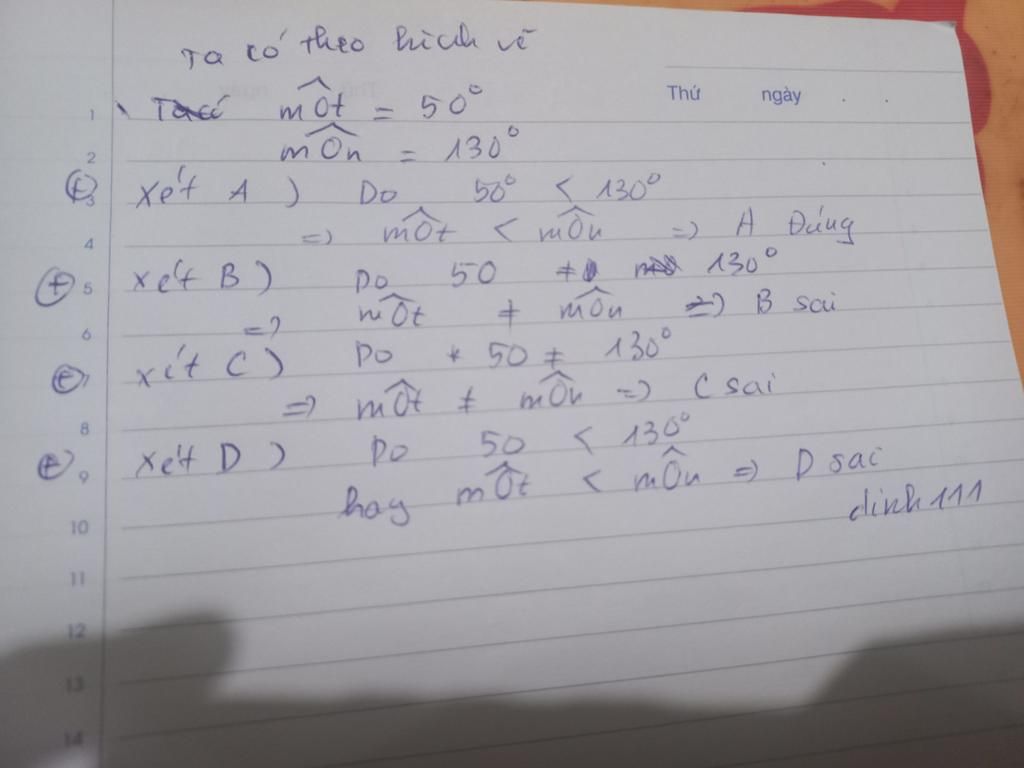 Ta có theo hình vẽ
Thứ ngày . .
1 mOt = 50°
2 mOn = 130°
3 Xét A ) Do 50° < 130°
4 => mOt < mOn => A Đúng
5 Xét B ) Do 50 ≠ 130°
6 => mOt ≠ mOn => B sai
7 Xét C ) Do 50 ≠ 130°
8 => mOt ≠ mOn => C sai
9 Xét D ) Do 50 < 130°
hay mOt < mOn => D sai
10 dinh111
11
12
13
14